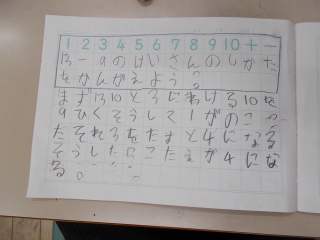 1 2 3 4 5 6 7 8 9 10 + −
13−9のけいさんのしかた
をかんがえよう
まず13 10と3にわける10を
9ひくそうして1がのこっ
たそれ3をたすと4になる
そうしたらこたえが4にな
る。